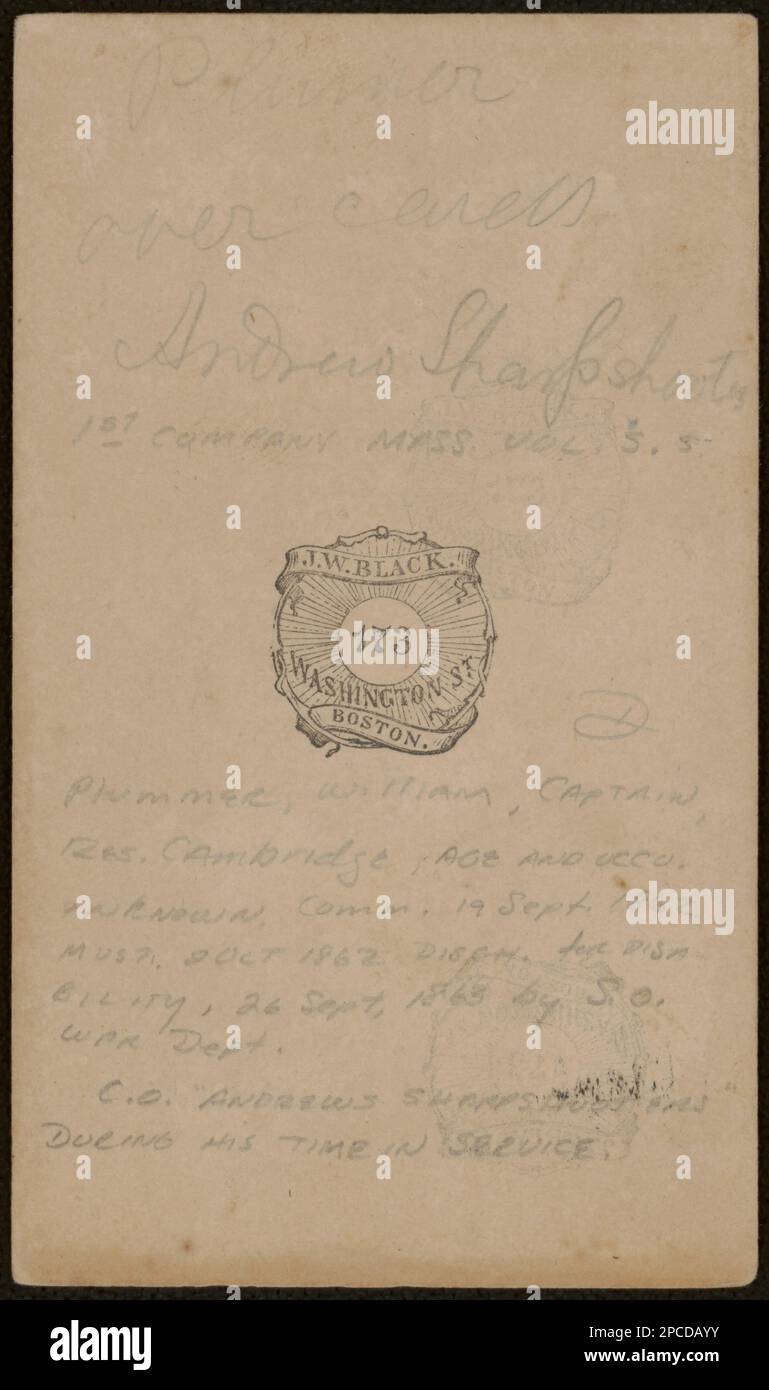 Plumer
over cards
Andrew Sharpshooters
1st COMPANY MASS. VOL. S. S.
J.W. BLACK.
173
WASHINGTON ST.
BOSTON.
D
Plummer, William, Captain,
Res. Cambridge, AGE AND OCCU.
UNKNOWN. Comm. 19 Sept. 1862
MUST. 2 OCT 1862 DISCH. for DISA
BILITY, 26 Sept, 1863 by S.O.
WAR Dept.
C.O. "ANDREWS SHARPSHOOTERS"
DURING HIS TIME IN SERVICE.
alamy
Image ID: 2PCDAYY
www.alamy.com